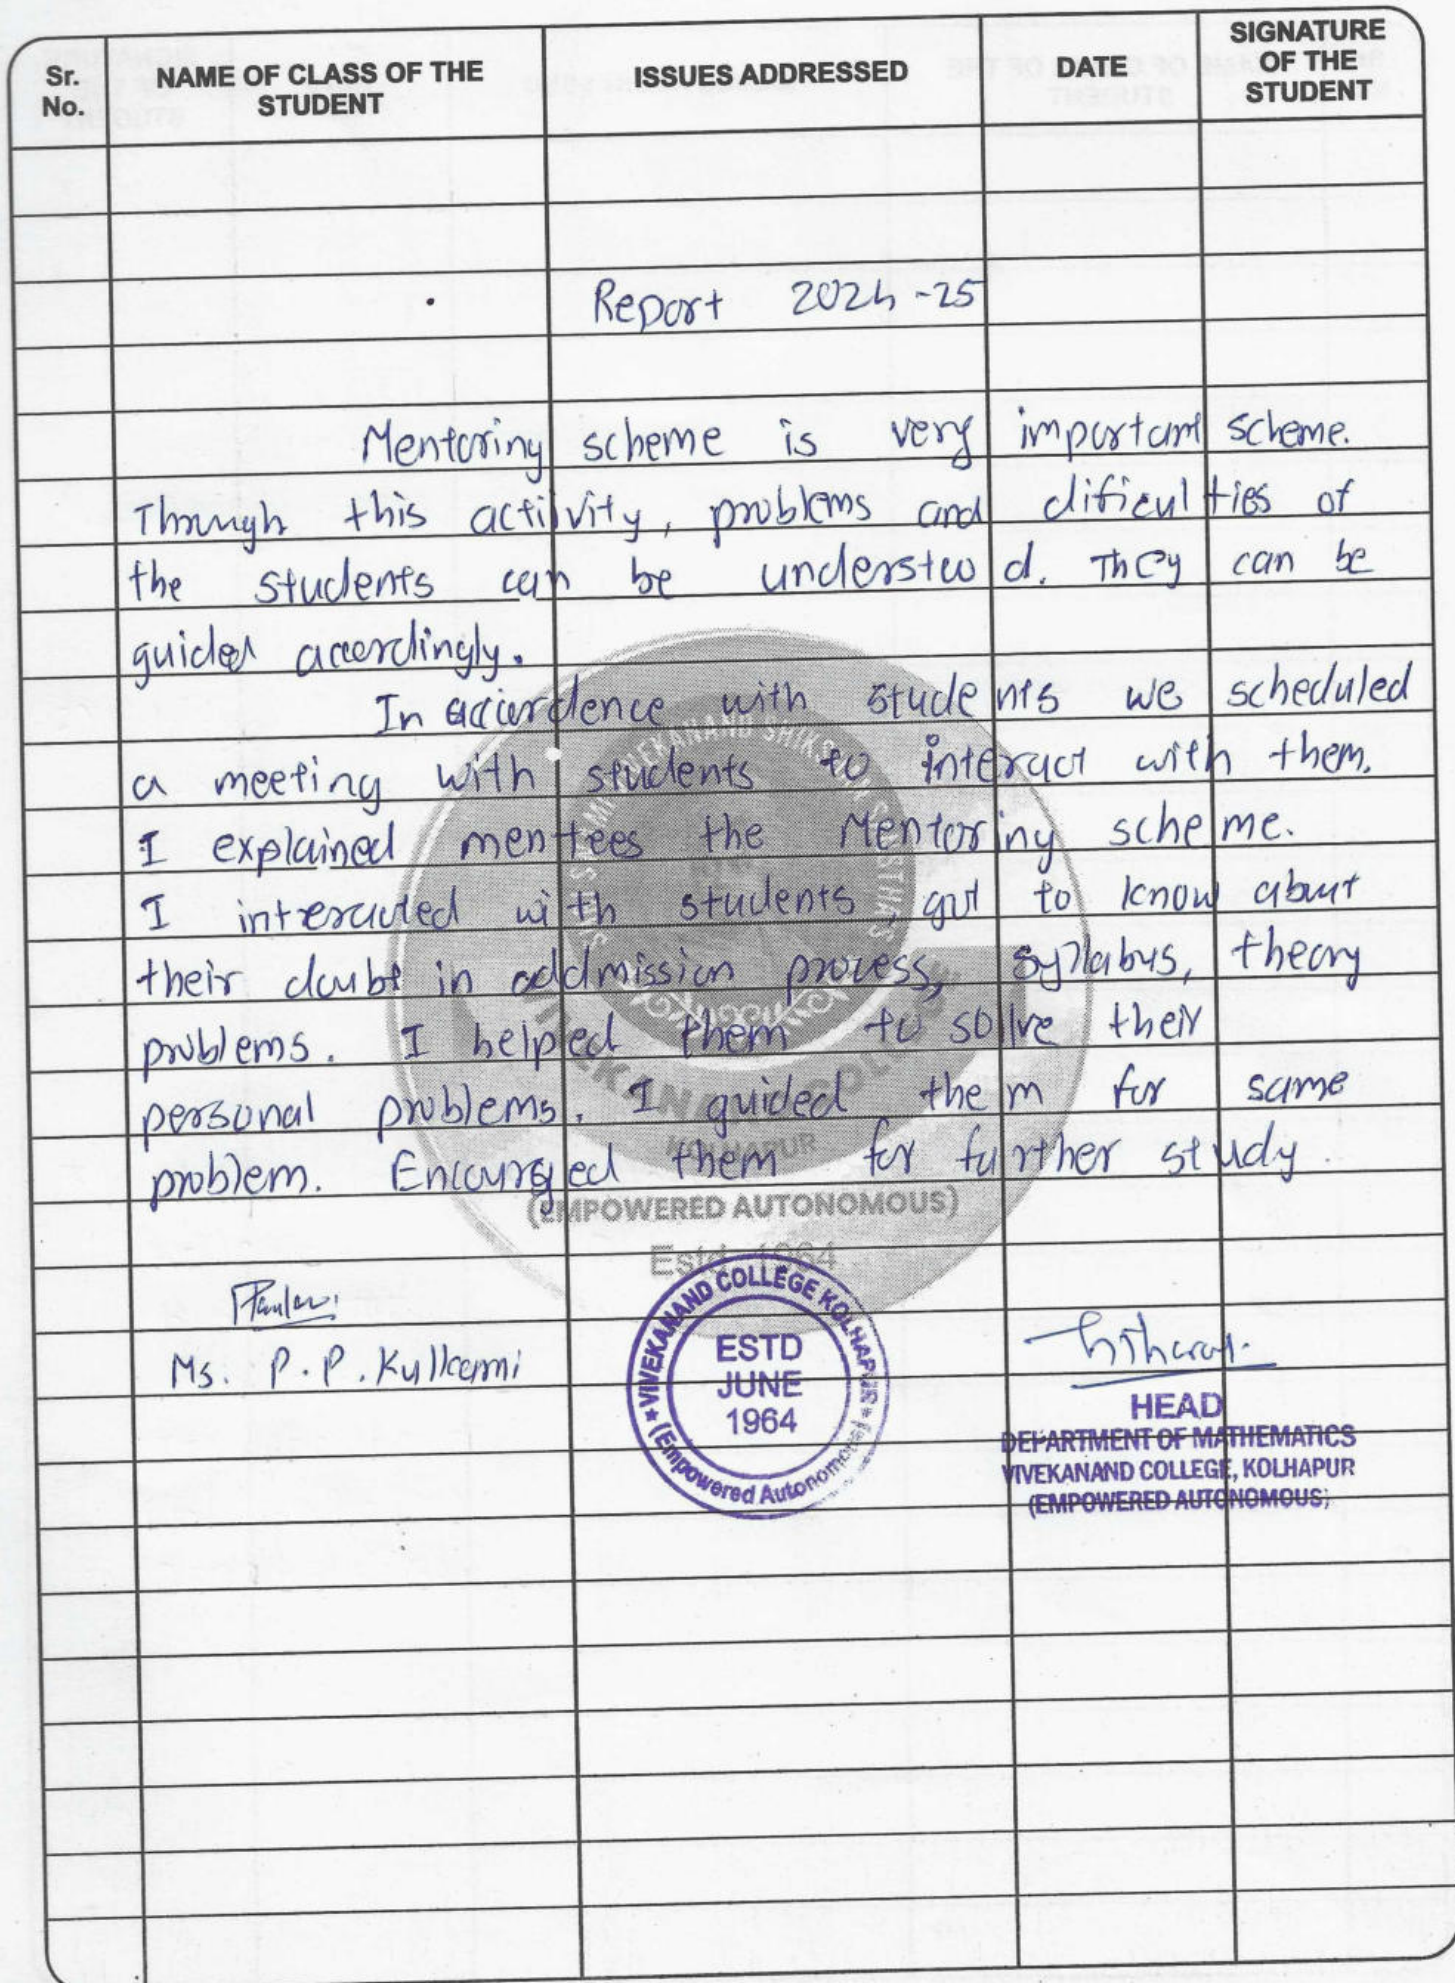 Sr. No.
NAME OF CLASS OF THE STUDENT
ISSUES ADDRESSED
DATE
SIGNATURE OF THE STUDENT
Report 2024-25
Mentoring scheme is very important scheme.
Through this activity, problems and dificulties of
the students can be understood. They can be
guided accordingly.
In accordence with students we scheduled
a meeting with students to interact with them.
I explained mentees the Mentoring scheme.
I interacted with students, got to know about
their doubt in addmission process, syllabus, theory
problems. I helped them to solve their
personal problems. I guided them for same
problem. Encouraged them for further study.
VIVEKANAND COLLEGE
KOLHAPUR
(EMPOWERED AUTONOMOUS)
Estd. 1964
Ms. P. P. Kulkarni
VIVEKANAND COLLEGE KOLHAPUR
(Empowered Autonomous)
ESTD
JUNE
1964
HEAD
DEPARTMENT OF MATHEMATICS
VIVEKANAND COLLEGE, KOLHAPUR
(EMPOWERED AUTONOMOUS)